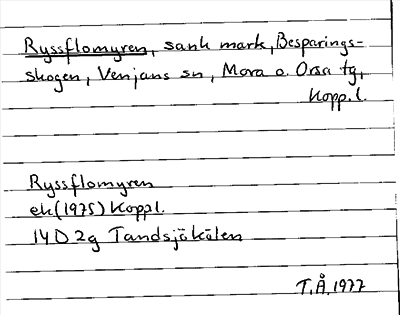 Ryssflomyren, sank mark, Besparings-
skogen, Venjans sn, Mora o. Orsa tg,
Kopp.l.
Ryssflomyren
ek (1975) Koppl.
14D 2g Tandsjökölen
T.Å. 1977